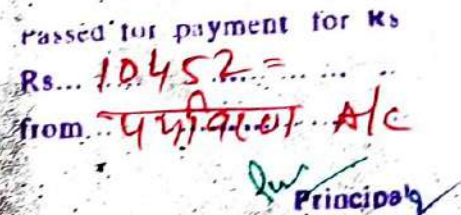 Passed for payment for Rs
Rs... 10452=
from... पर्यावरण A/c
Principal